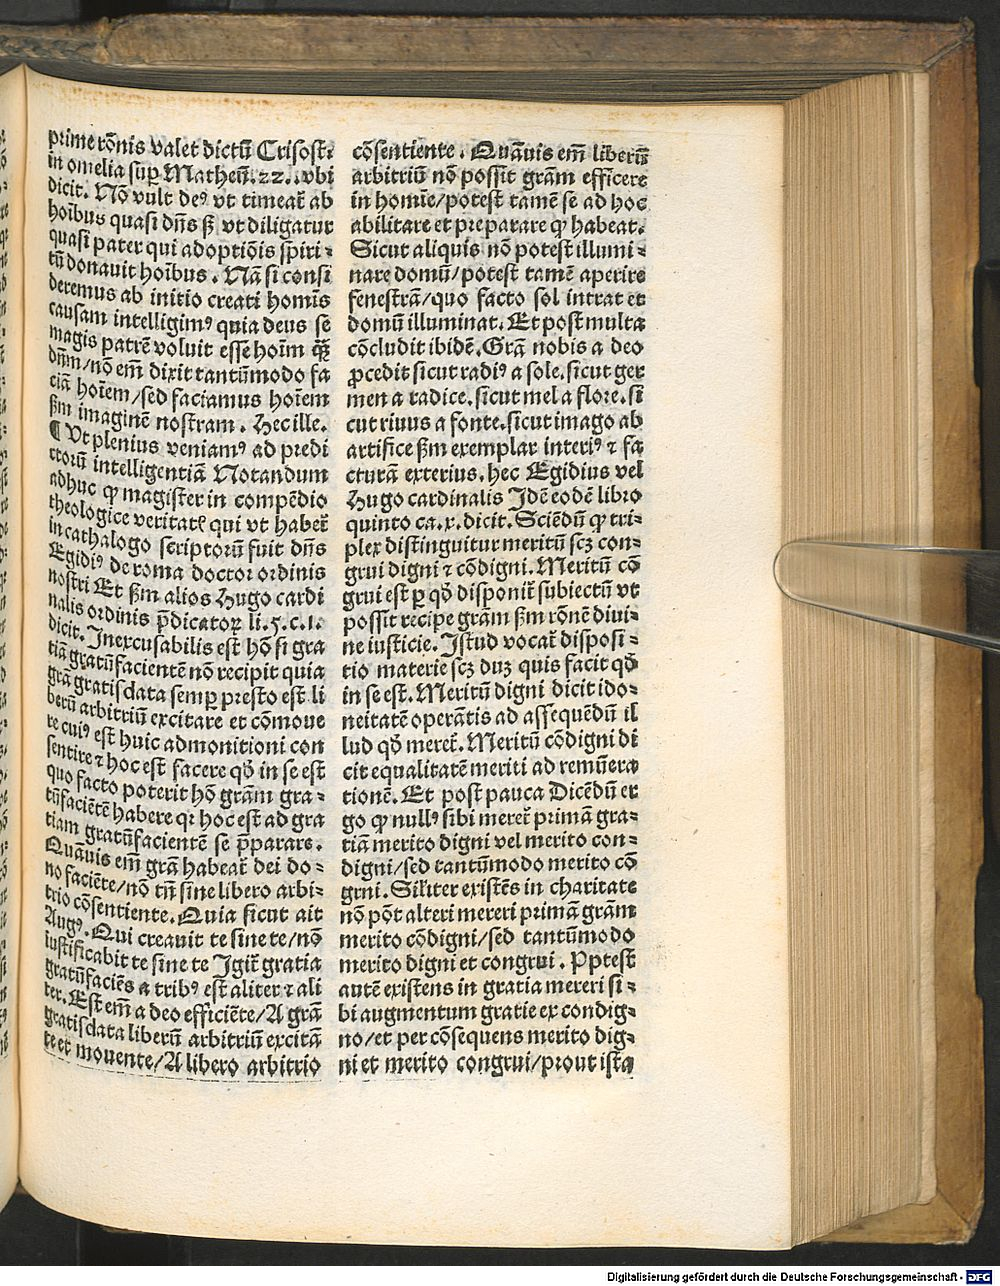 prime rōnis valet dictū Crisost.
in omelia suꝑ Matheū.22..vbi
dicit. Nō vult deꝰ vt timeat᷑ ab
hoībus quasi dn̄s sꝫ vt diligatur
quasi pater qui adoptiōis spiri⸗
tū donauit hoībus. Nā si consi
deremus ab initio creati homīs
causam intelligimꝰ quia deus se
magis patrē voluit esse hoīm q̄ꝫ
dn̄m/nō em̄ dixit tantūmodo fa
ciā hoīem/sed faciamus hoīem
ẜm imaginē nostram. Hec ille.
¶ Vt plenius veniamꝰ ad predi
ctorū intelligentiā Notandum
adhuc ꝙ magister in compēdio
theologice veritatꝭ qui vt habet᷑
in cathalogo scriptorū fuit dn̄s
Egidiꝰ de roma doctor ordinis
nostri Et ẜm alios Hugo cardi
nalis ordinis p̄dicatoꝝ li.5.c.1.
dicit. Inexcusabilis est hō si gra
tiā gratūfacientē nō recipit quia
grā gratisdata semꝑ presto est li
berū arbitriū excitare et cōmoue
re cuiꝰ est huic admonitioni con
sentire ⁊ hoc est facere qḋ in se est
quo facto poterit hō grām gra⸗
tūfaciētē habere qꝛ hoc est ad gra
tiam gratūfacientē se p̄parare.
Quāuis em̄ grā habeat᷑ dei do⸗
no faciēte/nō tn̄ sine libero arbi⸗
trio cōsentiente. Quia sicut ait
Augꝰ. Qui creauit te sine te/nō
iustificabit te sine te Igit᷑ gratia
gratūfaciēs a tribꝰ est aliter ⁊ ali
ter. Est em̄ a deo efficiēte/A grā
gratisdata liberū arbitriū excitā
te et mouente/A libero arbitrio
cōsentiente. Quāuis em̄ liberū
arbitriū nō possit grām efficere
in homīe/potest tamē se ad hoc
abilitare et preparare ꝙ habeat.
Sicut aliquis nō potest illumi⸗
nare domū/potest tamē aperire
fenestrā/quo facto sol intrat et
domū illuminat. Et post multa
cōcludit ibidē. Grā nobis a deo
ꝓcedit sicut radiꝰ a sole. sicut ger
men a radice. sicut mel a flore. si
cut riuus a fonte. sicut imago ab
artifice ẜm exemplar interiꝰ ⁊ fa
cturā exterius. hec Egidius vel
Hugo cardinalis Idē eodē libro
quinto ca.x. dicit. Sciēdū ꝙ tri⸗
plex distinguitur meritū scꝫ con⸗
grui digni ⁊ cōdigni. Meritū cō
grui est ꝑ qḋ disponit᷑ subiectū vt
possit recipe grām ẜm rōnē diui⸗
ne iusticie. Istud vocat᷑ disposi⸗
tio materie scꝫ duꝫ quis facit qḋ
in se est. Meritū digni dicit ido⸗
neitatē operātis ad assequēdū il
lud qḋ meret᷑. Meritū cōdigni di
cit equalitatē meriti ad remūera
tionē. Et post pauca Dicēdū er
go ꝙ nullꝰ sibi meret᷑ primā gra⸗
tiā merito digni vel merito con⸗
digni/sed tantūmodo merito cō
grui. Sil̄iter existēs in charitate
nō pōt alteri mereri primā grām
merito cōdigni/sed tantūmodo
merito digni et congrui. Pōtest
autē existens in gratia mereri si⸗
bi augmentum gratie ex condig⸗
no/et per cōsequens merito dig⸗
ni et merito congrui/prout ista
Digitalisierung gefördert durch die Deutsche Forschungsgemeinschaft - DFG